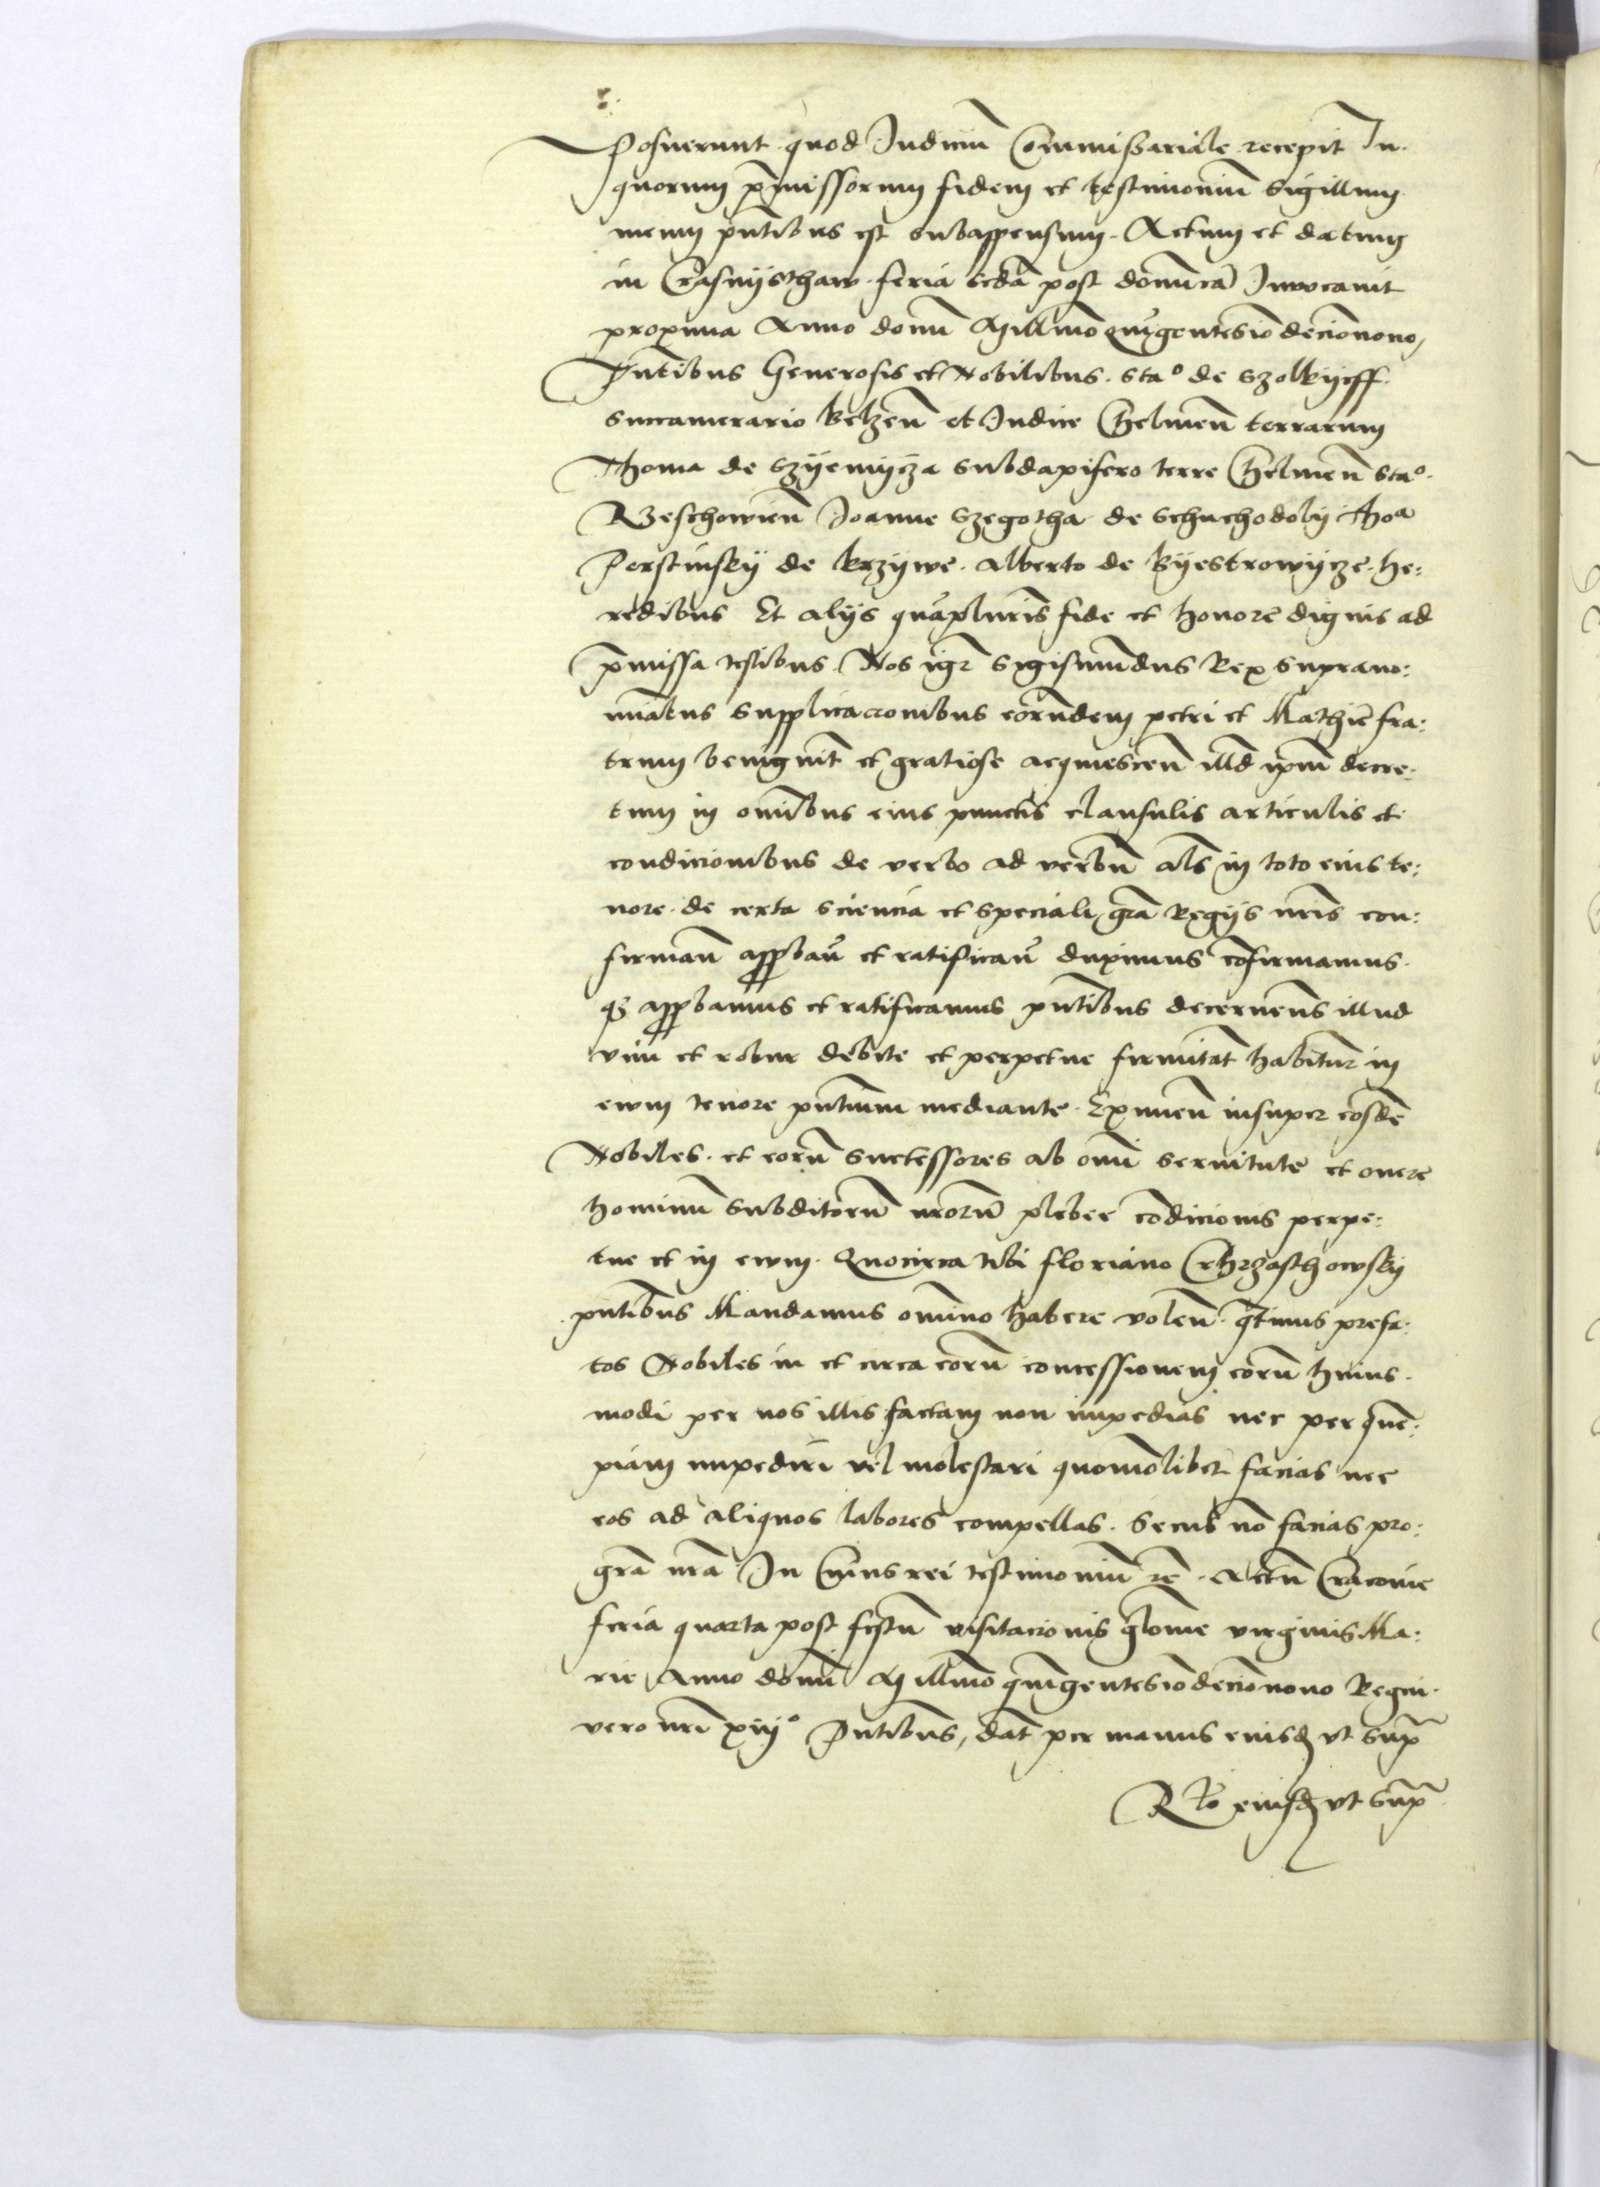 Posuerunt quod Judiciũ Commissariale recepit In
quorum p̄missorum fidem et testimoniũ Sigillum
meum pn̄tibus est subappensum. Actum et datum
in Crasnijsthaw feria scdã post domĩcã Invocavit
proxima Anno domĩ Millmo quĩgentesĩo decĩonono,
Pn̄tibus Generosis et Nobilibus. Stao de Szolkijeff
succamerario belzeñ et Judice Chelmeñ terrarum
Thoma de Szijemijcza subdapifero terre Chelmeñ Stao
Rzeschowieñ Joanne Szegotha de Schuchodolij Thoa
Porstinskij de krzijwe. Alberto de kijestrowijcze. he:
redibus Et alijs quãplurĩs fide et honore dignis ad
p̄missa testibus. Nos igr̃ Sigismundus Rex suprano:
minatus supplicacionibus eorundem petri et Mathie fra:
trum benignit̃ et gratiose acquiescen̄ illd̃ ipm̃ decre.
tum in omĩbus eius punctis clausulis articulis et
condicionibus de verbo ad verbũ als̃ in toto eius te:
nore. de certa sciencia et speciali grã Regijs nrĩs con:
firmañ approbañ et ratificañ duximus cõfirmamus.
qz approbamus et ratificamus pn̄tibus decernen̄s illud
vim et robur debite et perpetue firmitat̃ habitur̃ in
ewm tenore pn̄tium mediante. Eximen̄ insuper eosdẽ
Nobiles. et eorũ successores ab omĩ servitute et onere
hominũ subditorũ nr̃orũ plebee cõdicionis perpe:
tue et in ewm. Quocirca tibi floriano Chrzaschowskij
pn̄tibus Mandamus omĩno habere volen̄. q̃tinus prefa.
tos Nobiles in et circa eorũ concessionem eorũ huius.
modi per nos illis factam non impedias nec per quẽ:
piam impediri vel molestari quomõlibet facias nec
eos ad aliquos labores compellas. Secus nõ facias pro.
grã nr̃a In Cuius rei testimoniũ rẽ. Actũ Cracovie
feria quarta post festũ visitacionis gl̃ose virginis Ma.
rie Anno domĩ Millmo quĩgentesĩodecĩonono Regni.
vero nrĩ xiijo Pn̄tibus, dat̃ per manus eiusd̃ vt sup̃
Rto eiusd̃ vt sup̃